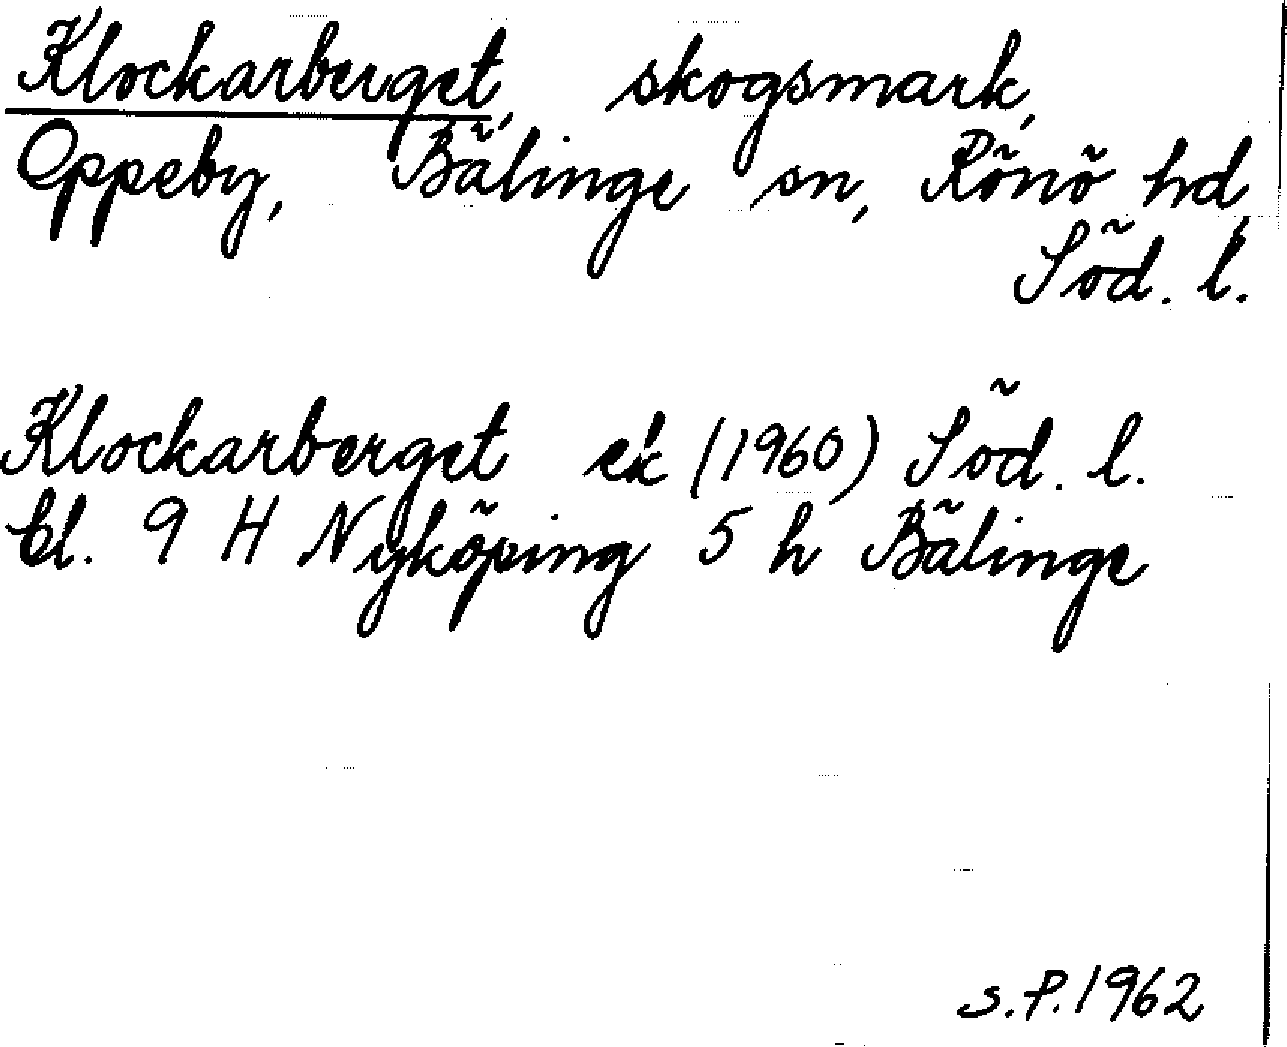 Klockarberget, skogsmark,
Oppeby, Bälinge sn, Rönö hd,
Söd. l.
Klockarberget ek (1960) Söd. l.
bl. 9 H Nyköping 5 h Bälinge
S.P. 1962